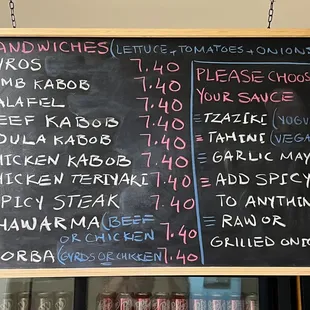 ANDWICHES (LETTUCE + TOMATOES + ONIONS
YROS 7.40
MB KABOB 7.40
ALAFEL 7.40
EEF KABOB 7.40
OULA KABOB 7.40
HICKEN KABOB 7.40
HICKEN TERIYAKI 7.40
PICY STEAK 7.40
HAWARMA (BEEF
OR CHICKEN 7.40
ORBA (GYROS OR CHICKEN 7.40
PLEASE CHOOS
YOUR SAUCE
TZAZIKI (YOGU
TAHINI (VEGA
GARLIC MAY
ADD SPICY
TO ANYTHIN
RAW OR
GRILLED ONIO